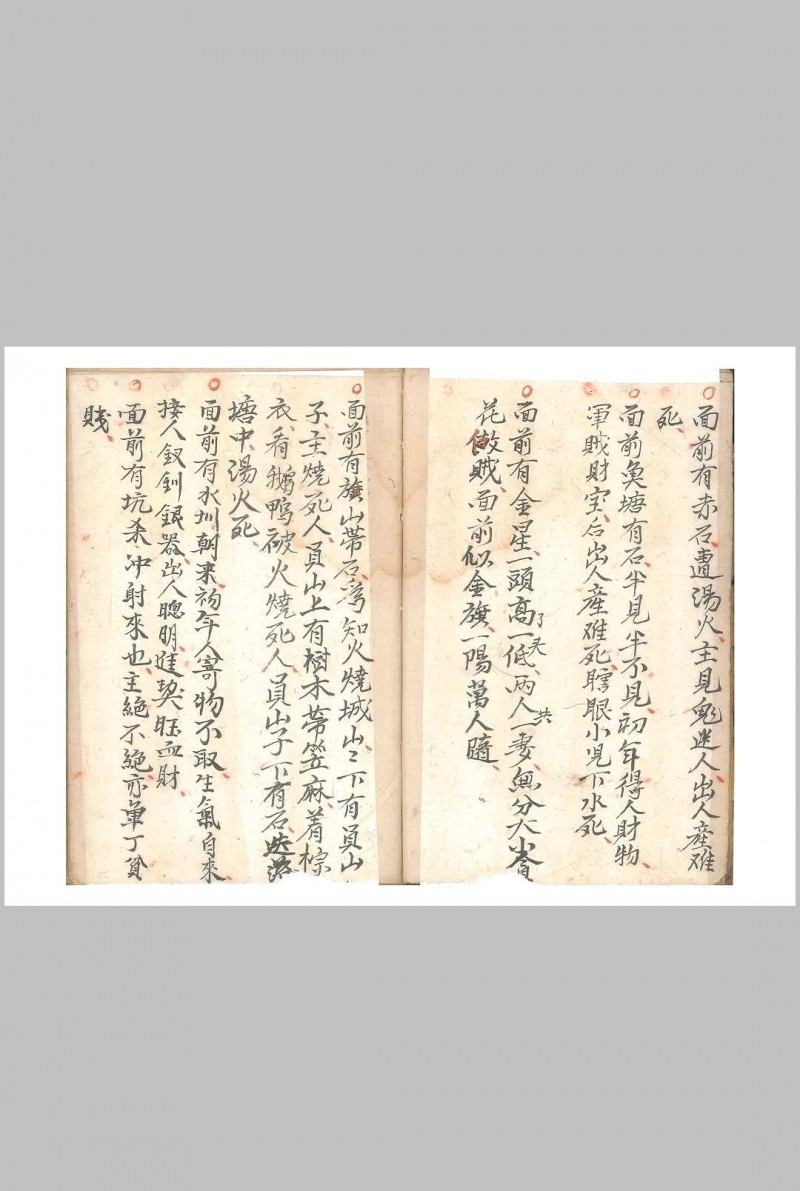 面前有赤石遭湯火主見鬼迷人出人產难
死
面前魚塘有石半見半不見初年得人財物
軍賊財宝后出人產难死瞎眼小児下水死
面前有金星一頭高一低兩人一妻無分大小
了夭
共
花做賊面前似金旗一陽萬人隨
面前有旗山帶石為知火燒城山〻下有員山
子主燒死人員山上有樹木帶笠麻着棕
衣看鵝鴨被火燒死人員山子下有石跌落
塘中湯火死
面前有水圳朝来初年人寄物不取生氣自來
接人釵釧銀器出人聰明進契旺血財
面前有坑杀冲射來也主絕不絕亦单丁貧
賤